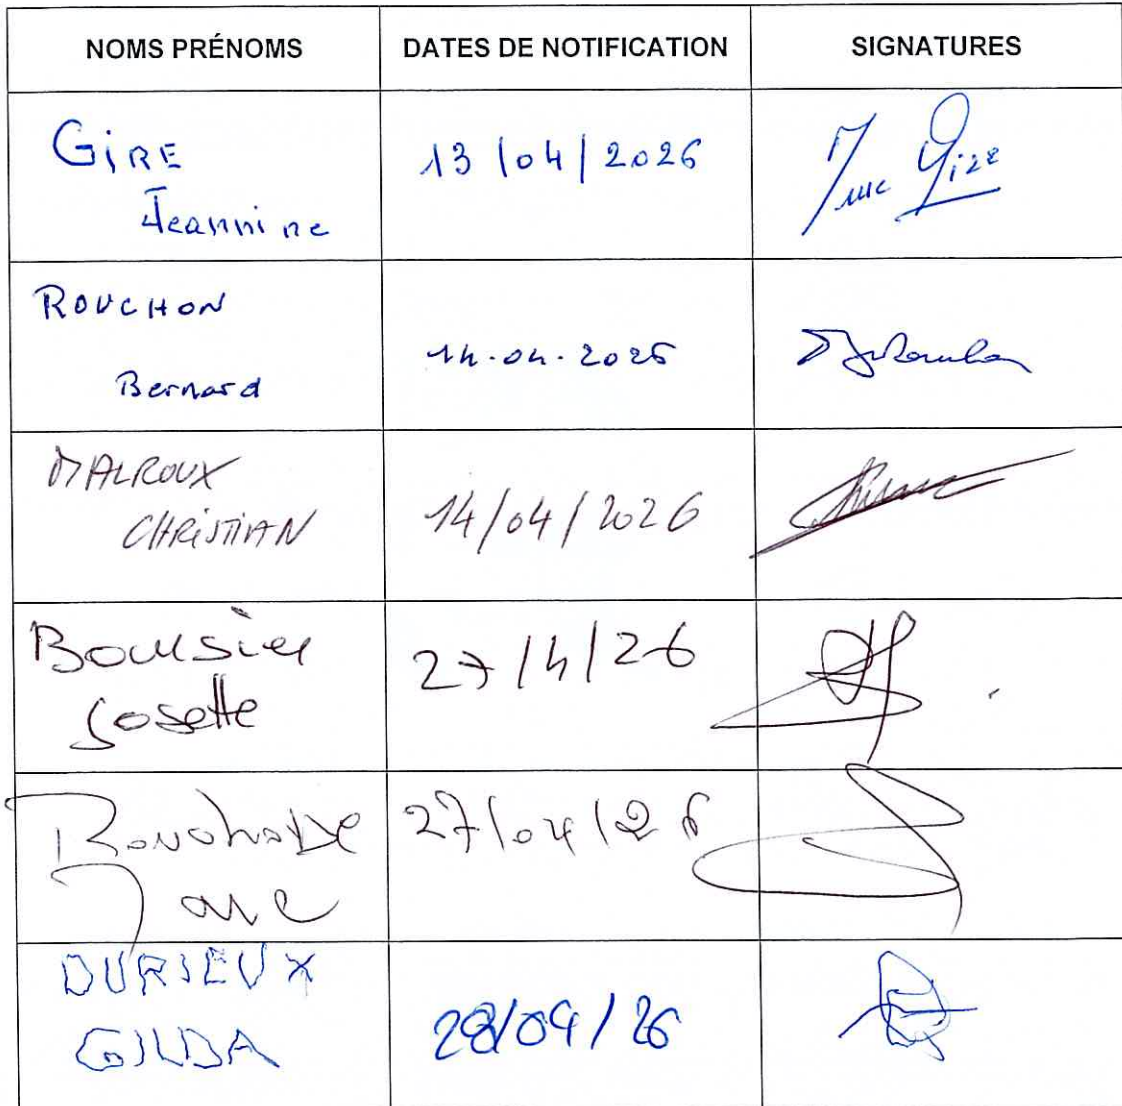 NOMS PRÉNOMS DATES DE NOTIFICATION SIGNATURES
GiRE
Jeannine
13/04/2026
Mme Gire
ROUCHON
Bernard
14.04.2026
MALROUX
CHRISTIAN
14/04/2026
Boursier
Josette
27/4/26
27/04/26
DURIEUX
GILDA
28/04/26